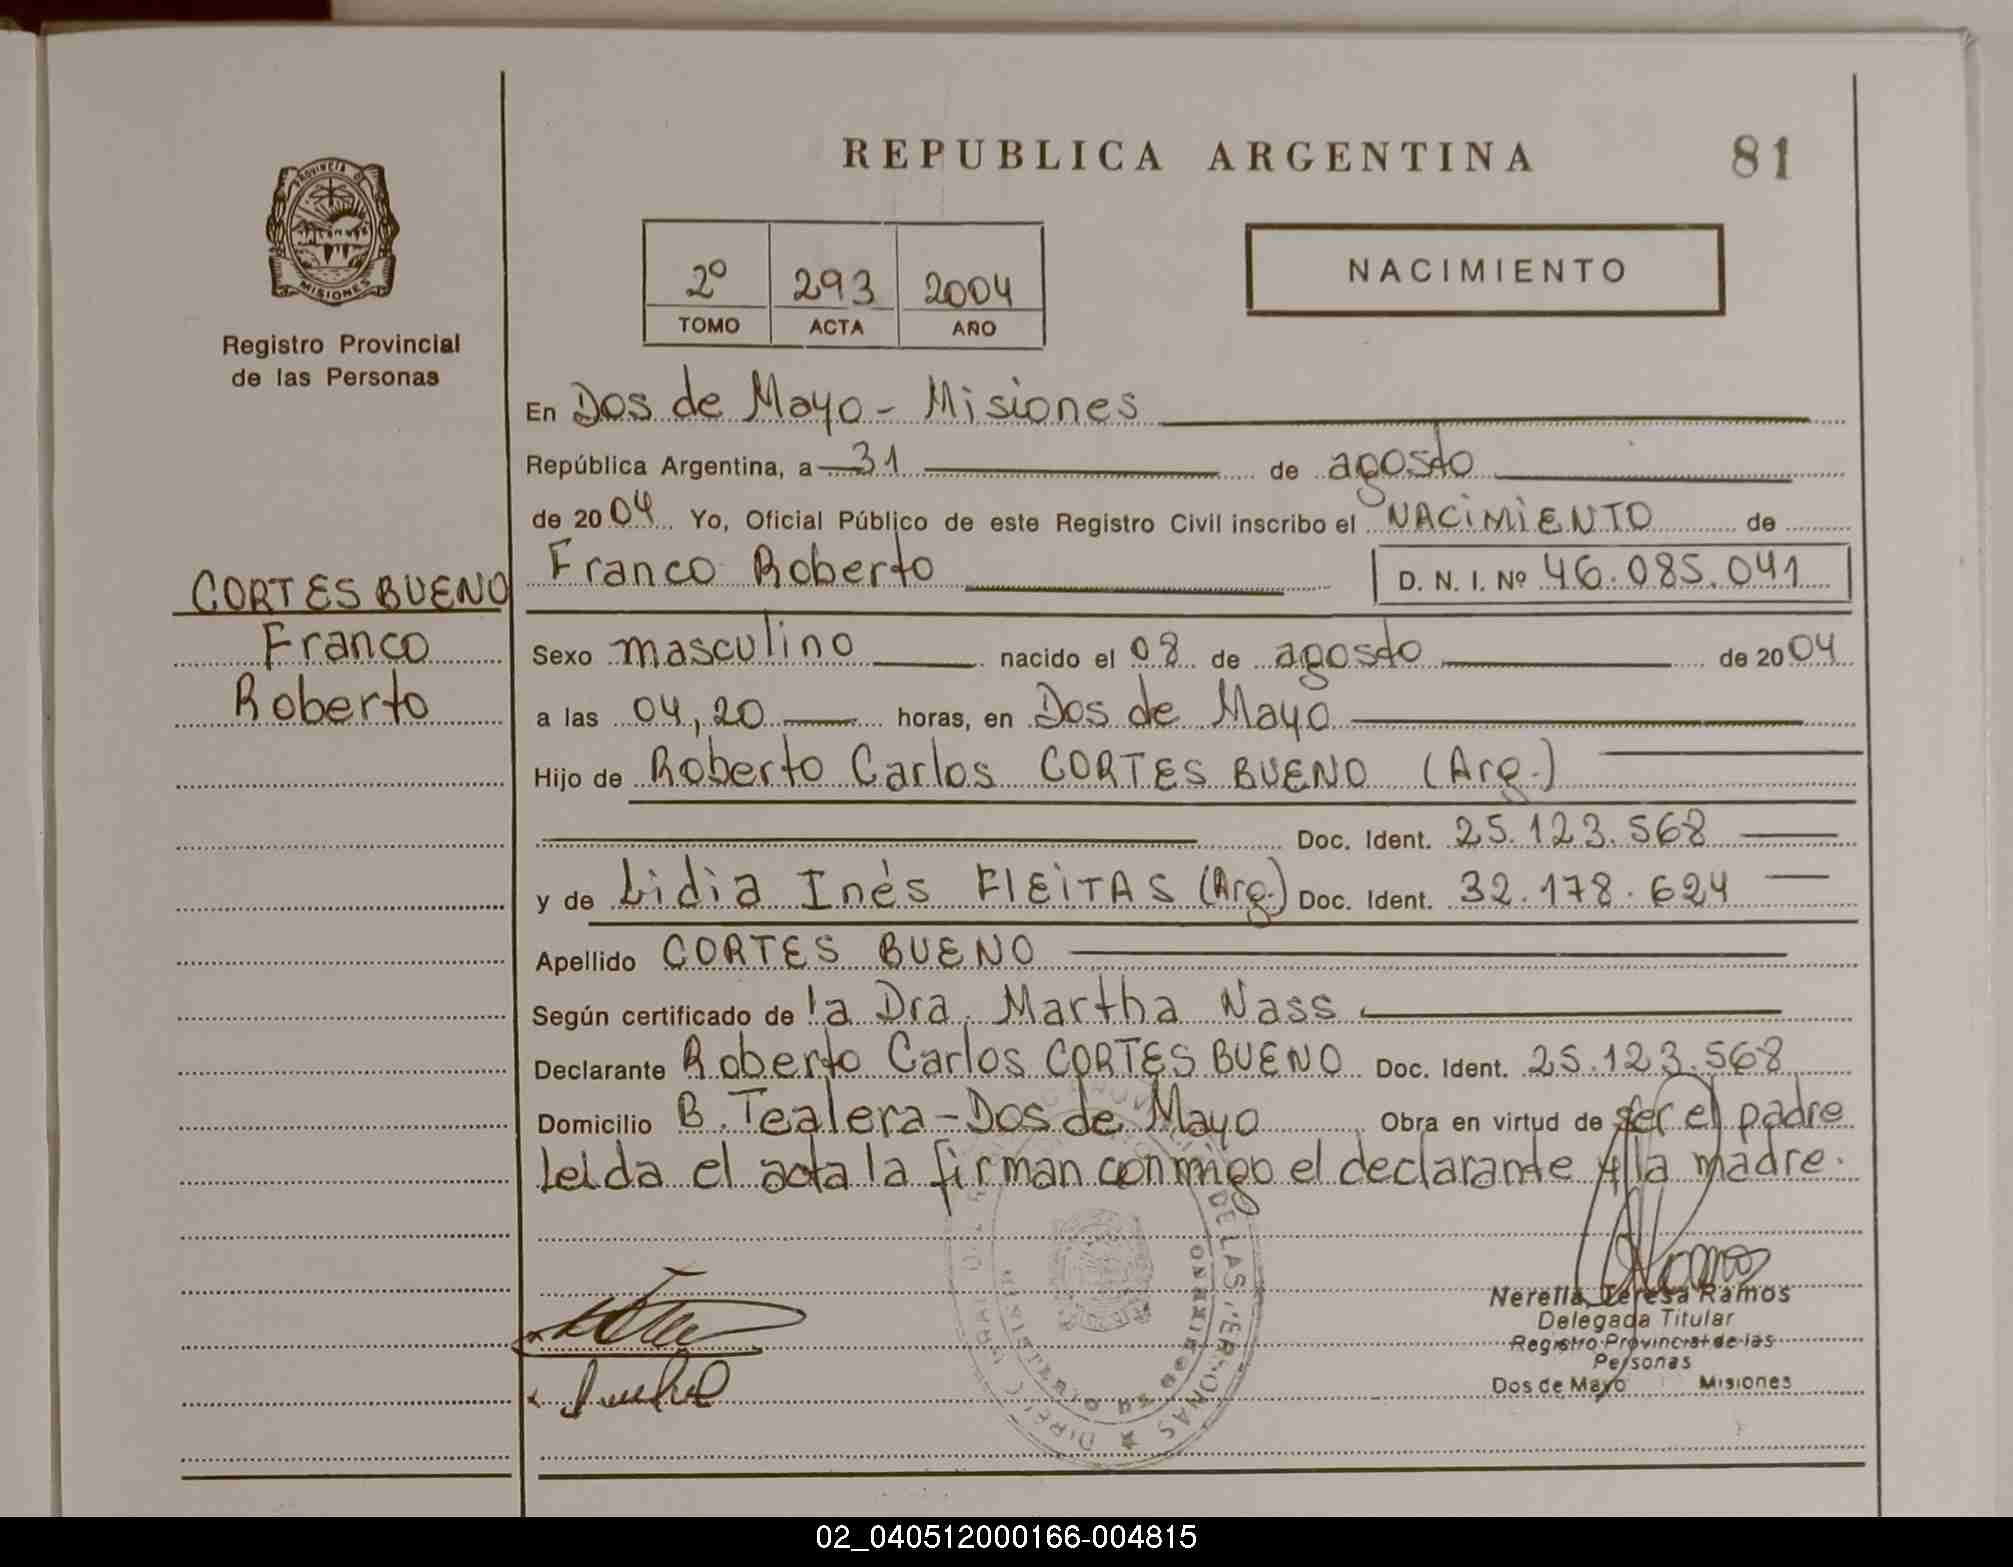 REPUBLICA ARGENTINA
81
PROVINCIA DE
MISIONES
Registro Provincial
de las Personas
2º 293 2004
TOMO ACTA AÑO
NACIMIENTO
En Dos de Mayo - Misiones
República Argentina, a 31 de agosto
de 2004 Yo, Oficial Público de este Registro Civil inscribo el NACIMIENTO de
CORTES BUENO
Franco
Roberto
Franco Roberto D. N. I. Nº 46.085.041
Sexo masculino nacido el 08 de agosto de 2004
a las 04,20 horas, en Dos de Mayo
Hijo de Roberto Carlos CORTES BUENO (Arg.)
Doc. Ident. 25.123.568
y de Lidia Inés FlEiTAS (Arg.) Doc. Ident. 32.178.624
Apellido CORTES BUENO
Según certificado de la Dra. Martha Nass
Declarante Roberto Carlos CORTES BUENO Doc. Ident. 25.123.568
Domicilio B. Tealera - Dos de Mayo Obra en virtud de ser el padre
Leida el acta la firman conmigo el declarante y la madre.
DE LAS PERSONAS
MINISTERIO DE GOBIERNO
Nerella Teresa Ramos
Delegada Titular
Registro Provincial de las
Personas
Dos de Mayo Misiones
02_040512000166-004815